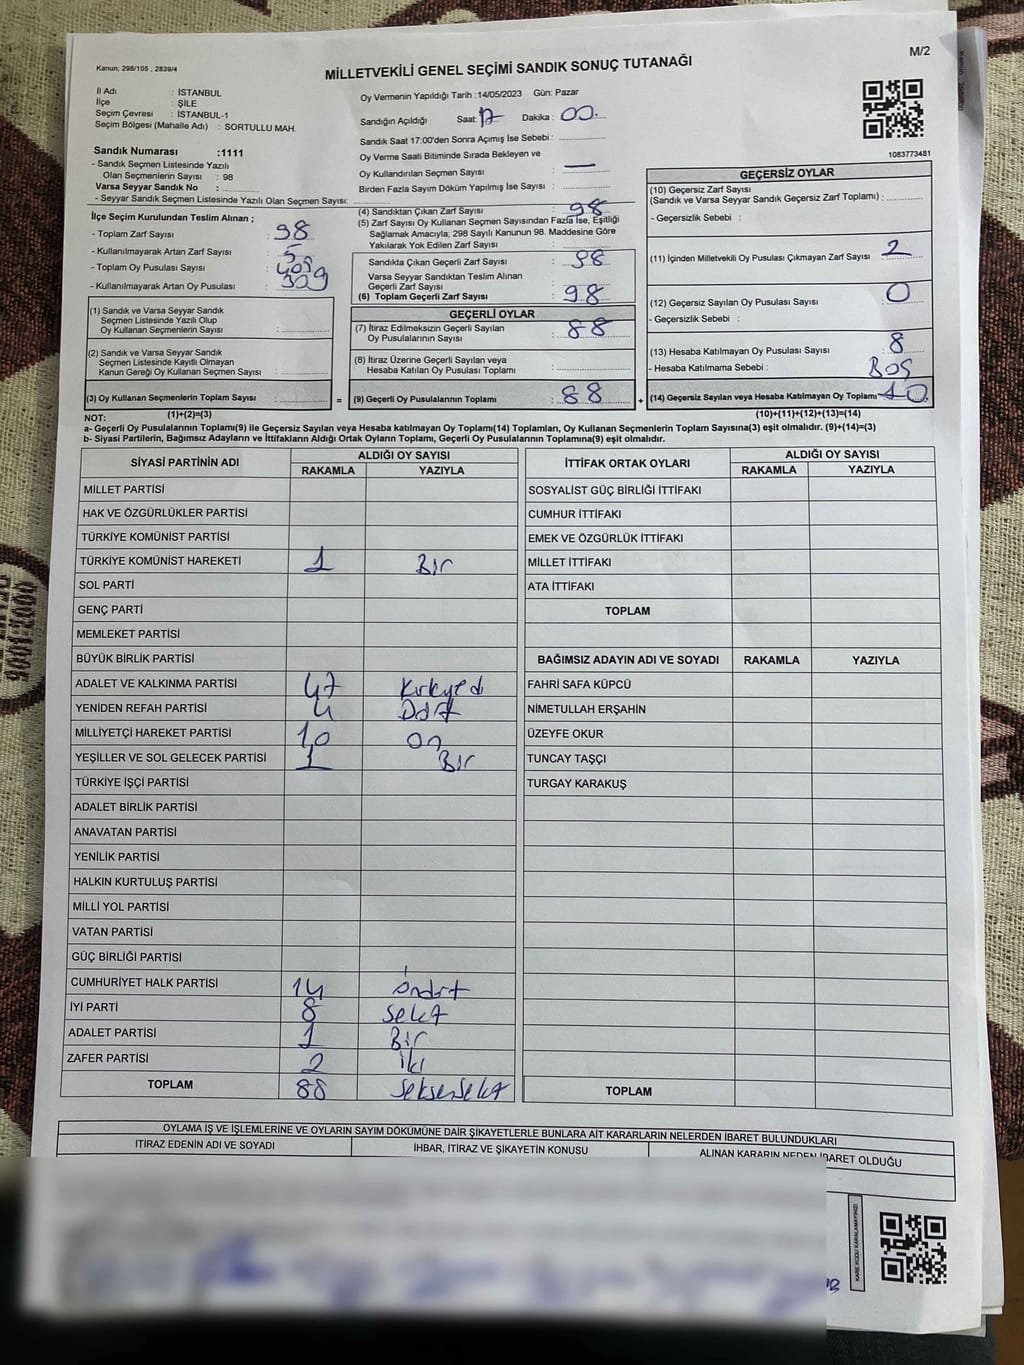 M/2
Kanun; 298/105 , 2839/4
MİLLETVEKİLİ GENEL SEÇİMİ SANDIK SONUÇ TUTANAĞI
İl Adı : İSTANBUL
İlçe : ŞİLE
Seçim Çevresi : İSTANBUL-1
Seçim Bölgesi (Mahalle Adı) : SORTULLU MAH.
Sandık Numarası :1111
- Sandık Seçmen Listesinde Yazılı
Olan Seçmenlerin Sayısı : 98
Varsa Seyyar Sandık No :
- Seyyar Sandık Seçmen Listesinde Yazılı Olan Seçmen Sayısı:
Oy Vermenin Yapıldığı Tarih :14/05/2023 Gün: Pazar
Sandığın Açıldığı Saat: 17 Dakika : 00.
Sandık Saat 17:00'den Sonra Açımış İse Sebebi :
Oy Verme Saati Bitiminde Sırada Bekleyen ve
Oy Kullandırılan Seçmen Sayısı : —
Birden Fazla Sayım Döküm Yapılmış İse Sayısı :
1083773481
İlçe Seçim Kurulundan Teslim Alınan ;
- Toplam Zarf Sayısı : 98
- Kullanılmayarak Artan Zarf Sayısı : 5
- Toplam Oy Pusulası Sayısı :
- Kullanılmayarak Artan Oy Pusulası : 309
(1) Sandık ve Varsa Seyyar Sandık
Seçmen Listesinde Yazılı Olup
Oy Kullanan Seçmenlerin Sayısı :
(2) Sandık ve Varsa Seyyar Sandık
Seçmen Listesinde Kayıtlı Olmayan
Kanun Gereği Oy Kullanan Seçmen Sayısı :
(3) Oy Kullanan Seçmenlerin Toplam Sayısı :
(1)+(2)=(3)
(4) Sandıktan Çıkan Zarf Sayısı : 98
(5) Zarf Sayısı Oy Kullanan Seçmen Sayısından Fazla İse, Eşitliği
Sağlamak Amacıyla, 298 Sayılı Kanunun 98. Maddesine Göre
Yakılarak Yok Edilen Zarf Sayısı :
Sandıkta Çıkan Geçerli Zarf Sayısı : 98
Varsa Seyyar Sandıktan Teslim Alınan
Geçerli Zarf Sayısı :
(6) Toplam Geçerli Zarf Sayısı : 98
GEÇERLİ OYLAR
(7) İtiraz Edilmeksizin Geçerli Sayılan
Oy Pusulalarının Sayısı : 88
(8) İtiraz Üzerine Geçerli Sayılan veya
Hesaba Katılan Oy Pusulası Toplamı :
= (9) Geçerli Oy Pusulalarının Toplamı : 88 +
GEÇERSİZ OYLAR
(10) Geçersiz Zarf Sayısı
(Sandık ve Varsa Seyyar Sandık Geçersiz Zarf Toplamı) :
- Geçersizlik Sebebi :
(11) İçinden Milletvekili Oy Pusulası Çıkmayan Zarf Sayısı : 2
(12) Geçersiz Sayılan Oy Pusulası Sayısı : 0
- Geçersizlik Sebebi :
(13) Hesaba Katılmayan Oy Pusulası Sayısı : 8
- Hesaba Katılmama Sebebi : BOŞ
(14) Geçersiz Sayılan veya Hesaba Katılmayan Oy Toplamı 10
(10)+(11)+(12)+(13)=(14)
NOT:
a- Geçerli Oy Pusulalarının Toplamı(9) ile Geçersiz Sayılan veya Hesaba katılmayan Oy Toplamı(14) Toplamları, Oy Kullanan Seçmenlerin Toplam Sayısına(3) eşit olmalıdır. (9)+(14)=(3)
b- Siyasi Partilerin, Bağımsız Adayların ve İttifakların Aldığı Ortak Oyların Toplamı, Geçerli Oy Pusulalarının Toplamına(9) eşit olmalıdır.
SİYASİ PARTİNİN ADI ALDIĞI OY SAYISI
RAKAMLA YAZIYLA
MİLLET PARTİSİ
HAK VE ÖZGÜRLÜKLER PARTİSİ
TÜRKİYE KOMÜNİST PARTİSİ
TÜRKİYE KOMÜNİST HAREKETİ 1 Bir
SOL PARTİ
GENÇ PARTİ
MEMLEKET PARTİSİ
BÜYÜK BİRLİK PARTİSİ
ADALET VE KALKINMA PARTİSİ 47 Kırkyedi
YENİDEN REFAH PARTİSİ 4 Dört
MİLLİYETÇİ HAREKET PARTİSİ 10 On
YEŞİLLER VE SOL GELECEK PARTİSİ 1 Bir
TÜRKİYE İŞÇİ PARTİSİ
ADALET BİRLİK PARTİSİ
ANAVATAN PARTİSİ
YENİLİK PARTİSİ
HALKIN KURTULUŞ PARTİSİ
MİLLİ YOL PARTİSİ
VATAN PARTİSİ
GÜÇ BİRLİĞİ PARTİSİ
CUMHURİYET HALK PARTİSİ 14 ondört
İYİ PARTİ 8 Sekiz
ADALET PARTİSİ 1 Bir
ZAFER PARTİSİ 2 iki
TOPLAM 88 Seksensekiz
İTTİFAK ORTAK OYLARI ALDIĞI OY SAYISI
RAKAMLA YAZIYLA
SOSYALİST GÜÇ BİRLİĞİ İTTİFAKI
CUMHUR İTTİFAKI
EMEK VE ÖZGÜRLÜK İTTİFAKI
MİLLET İTTİFAKI
ATA İTTİFAKI
TOPLAM
BAĞIMSIZ ADAYIN ADI VE SOYADI RAKAMLA YAZIYLA
FAHRİ SAFA KÜPCÜ
NİMETULLAH ERŞAHİN
ÜZEYFE OKUR
TUNCAY TAŞÇI
TURGAY KARAKUŞ
TOPLAM
OYLAMA İŞ VE İŞLEMLERİNE VE OYLARIN SAYIM DÖKÜMÜNE DAİR ŞİKAYETLERLE BUNLARA AİT KARARLARIN NELERDEN İBARET BULUNDUKLARI
İTİRAZ EDENİN ADI VE SOYADI İHBAR, İTİRAZ VE ŞİKAYETİN KONUSU ALINAN KARARIN NEDEN İBARET OLDUĞU
KARE KODU KARALAMAYINIZ!